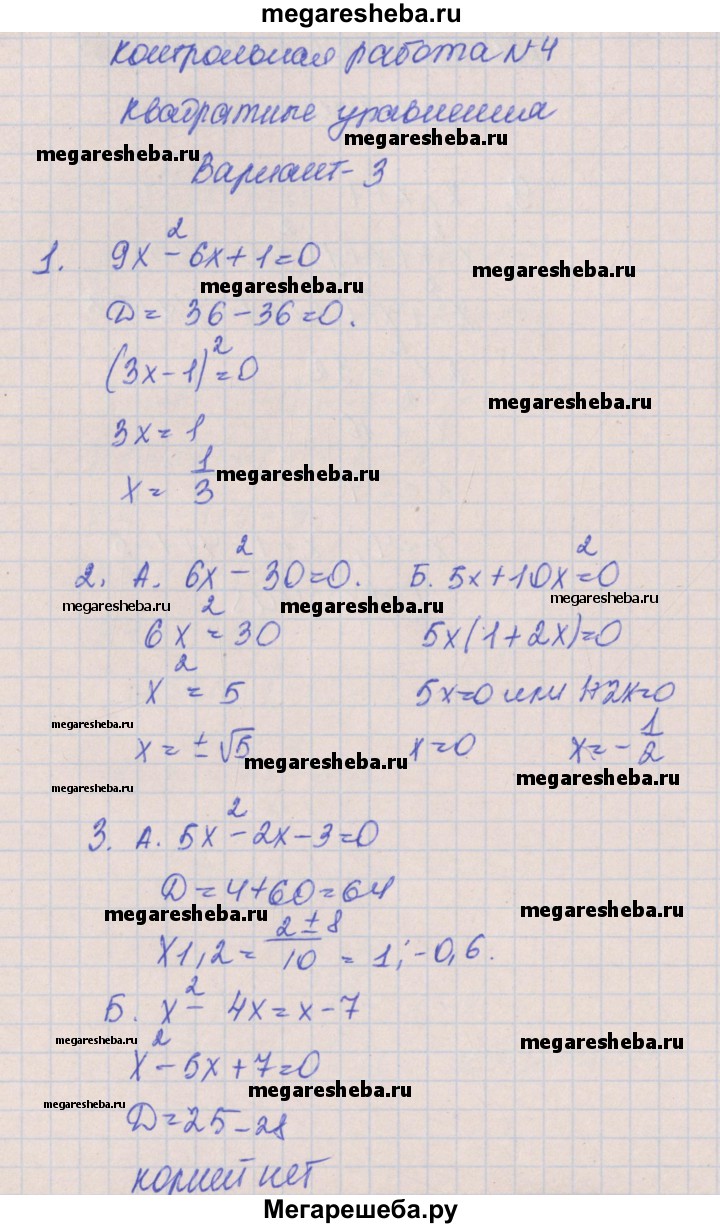 megaresheba.ru
Контрольная работа №4
Квадратные уравнения
megaresheba.ru
megaresheba.ru
Вариант-3
1. 9x² - 6x + 1 = 0
megaresheba.ru
megaresheba.ru
D = 36 - 36 = 0.
(3x - 1)² = 0
megaresheba.ru
3x = 1
x = 1/3
megaresheba.ru
2. А. 6x² - 30 = 0. Б. 5x + 10x² = 0
megaresheba.ru megaresheba.ru megaresheba.ru
6x² = 30 5x(1 + 2x) = 0
x² = 5 5x = 0 или 1 + 2x = 0
megaresheba.ru
x = ± √5 x = 0 x = - 1/2
megaresheba.ru
megaresheba.ru
megaresheba.ru
3. А. 5x² - 2x - 3 = 0
D = 4 + 60 = 64
megaresheba.ru megaresheba.ru
x1,2 = (2 ± 8)/10 = 1; -0,6.
Б. x² - 4x = x - 7
megaresheba.ru megaresheba.ru
x² - 5x + 7 = 0
megaresheba.ru
megaresheba.ru
D = 25 - 28
корней нет
Мегарешеба.ру